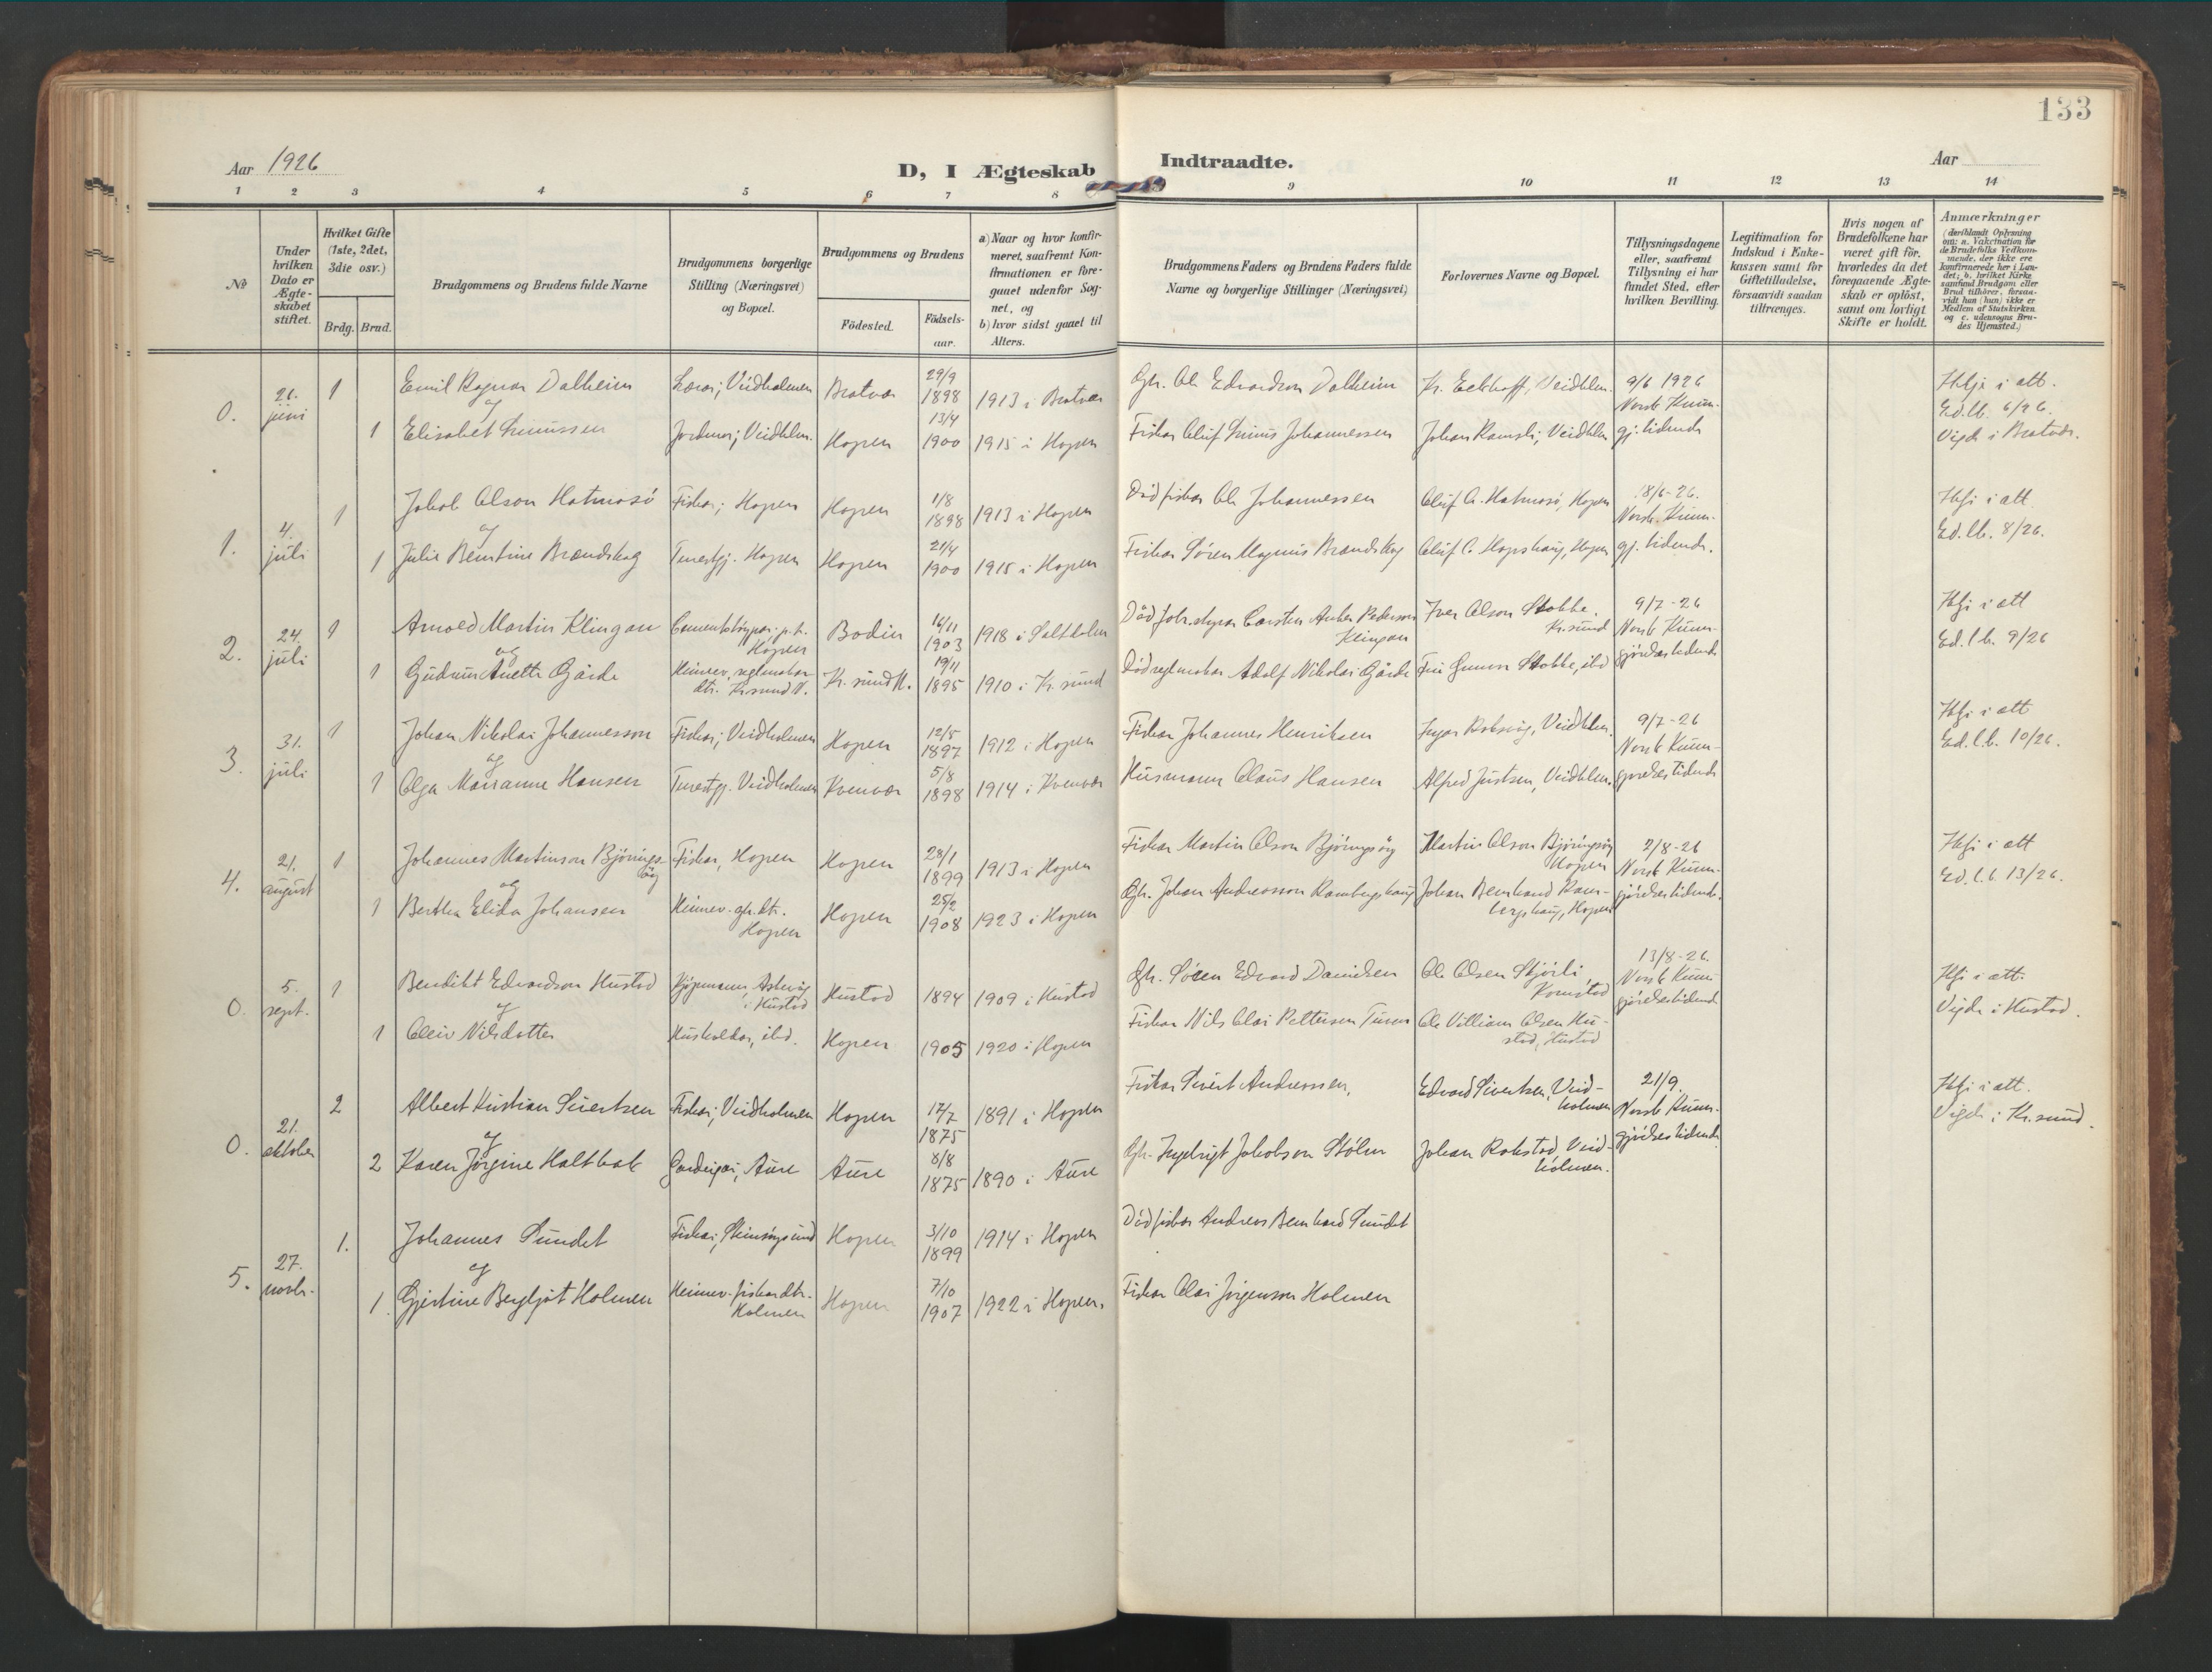 133
Aar 1926
D, I Ægteskab Indtraadte.
Aar
1 2 3 4 5 6 7 8 9 10 11 12 13 14
No
Under hvilken Dato er Ægteskabet stiftet.
Hvilket Gifte (1ste, 2det, 3die osv.)
Brdg. Brud.
Brudgommens og Brudens fulde Navne
Brudgommens borgerlige Stilling (Næringsvei) og Bopæl.
Brudgommens og Brudens
Födested.
Födselsaar.
a) Naar og hvor konfirmeret, saafremt Konfirmationen er foregaaet udenfor Sognet, og
b) hvor sidst gaaet til Alters.
Brudgommens Faders og Brudens Faders fulde Navne og borgerlige Stillinger (Næringsvei)
Forlovernes Navne og Bopæl.
Tillysningsdagene eller, saafremt Tillysning ei har fundet Sted, efter hvilken Bevilling.
Legitimation for Indskud i Enkekassen samt for Giftetilladelse, forsaavidt saadan tiltrænges.
Hvis nogen af Brudefolkene har været gift för, hvorledes da det foregaaende Ægteskab er oplöst, samt om lovligt Skifte er holdt.
Anmærkninger
(deriblandt Oplysning om: a. Vaksination for de Brudefolks Vedkommende, der ikke ere konfirmerede her i Landet; b. hvilket Kirkesamfund Brudgom eller Brud tilhörer, forsaavidt han (hun) ikke er Medlem af Statskirken og c. udensogns Brudes Hjemsted.)
0. 26. juni 1 Emil Ragnar Dalheim Lærar; Veidholmen Bratvær 29/9 1898 1913 i Bratvær Gbr. Ole Edvardson Dalheim Kr. Eckhoff, Veidhlm. 9/6 1926 Norsk Kunn- Hfj i att.
og Ed.lb. 6/26.
1 Elisabet Linussen Jordmor; Veidhlm. Hopen 13/4 1900 1915 i Hopen Fiskar Oluf Linus Johannessen Johan Ramsli; Veidhlm gj. tidende Vigde i Bratvær.
1. 4. juli 1 Jakob Olson Hatmosö Fiskar; Hopen Hopen 1/8 1898 1913 i Hopen Död fiskar Ole Johannessen Oluf O. Hatmosö, Hopen 18/6-26. Norsk Kunn- Hfj i att
og Ed.lb. 8/26.
1 Julie Berntine Brandskog Tenestgj. Hopen Hopen 21/4 1900 1915 i Hopen Fiskar Sören Magnus Brandskog Oluf O. Hopshaug, Hopen gj. tidende.
2. 24. juli 1 Arnold Martin Klingan Cementstöypar p.t. Hopen Bodin 16/11 1903 1918 i Saltdalen Död Carsten Anker Pedersen Klingan Iver Olson Stobbe. Kr.sund 9/7-26 Norsk Kunn- Hfj i att
og Ed.l.b. 9/26
1 Gudrun Anette Gjærde Heimev. dtr. Kr.sund N. Kr.sund N. 19/11 1895 1910 i Kr.sund Död Adolf Nikolai Gjærde Fru Gunvor Stobbe, ibd gjördes tidende
3. 31. juli 1 Johan Nikolai Johannesson Fiskar; Veidholmen Hopen 12/5 1897 1912 i Hopen Fiskar Johannes Henriksen Ingar Roksvåg, Veidhlm. 9/7-26 Norsk Kunn- Hfj i att
og Ed.l.b. 10/26.
1 Olga Marianne Hansen Tenestgj. Veidholmen Kvenvær 5/8 1898 1914 i Kvenvær Husmann Claus Hansen Alfred Justsen, Veidhlm. gjördes tidende
4. 21. august 1 Johannes Martinson Björingsöy Fiskar, Hopen Hopen 28/1 1899 1913 i Hopen Fiskar Martin Olson Björingsöy Martin Olson Björingsöy Hopen 2/8-26 Norsk Kunn- Hfj i att
og Ed.l.b. 13/26.
1 Bertha Elida Johansen Heimev. gbr.dtr. Hopen Hopen 25/2 1908 1923 i Hopen Gbr. Johan Andreasson Rambergshaug Johan Bernhard Rambergshaug, Hopen gjördes tidende.
0. 5. sept. 1 Bendikt Edvardson Hustad Kjöpmann, i Hustad Hustad 1894 1909 i Hustad Gbr. Sören Edvard Danielsen Ole Olsen Skjörli 13/8-26. Norsk Kunn- Hfj i att.
og gjördes tidende Vigde i Hustad.
1 Oleiv Nilsdotter Husholdar, ibd. Hopen 1905 1920 i Hopen Fiskar Nils Olai Pettersen Ole Villiam Olsen Hustad, Hustad
0. 21. oktober 2 Albert Kristian Sivertsen Fiskar; Veidholmen Hopen 17/7 1875 1891 i Hopen Fiskar Sivert Andreassen, Edvard Sivertsen, Veidholmen 21/9. Norsk Kunn- Hfj i att.
og Vigde i Kr.sund.
2 Karen Jörgine Haltbak Gardeigar; Aure Aure 8/8 1875 1890 i Aure Gbr. Ingebrigt Jakobson Stölen Johan Rokstad, Veidholmen. gjördes tidende
5. 27. novbr. 1. Johannes Sundet Fiskar; Steinsöysund Hopen 3/10 1899 1914 i Hopen Död fiskar Andreas Bernhard Sundet
og
1. Gjertine Bergljot Holmen Heimev. fiskardtr. Holmen Hopen 7/10 1907 1922 i Hopen. Fiskar Olai Jörgensen Holmen